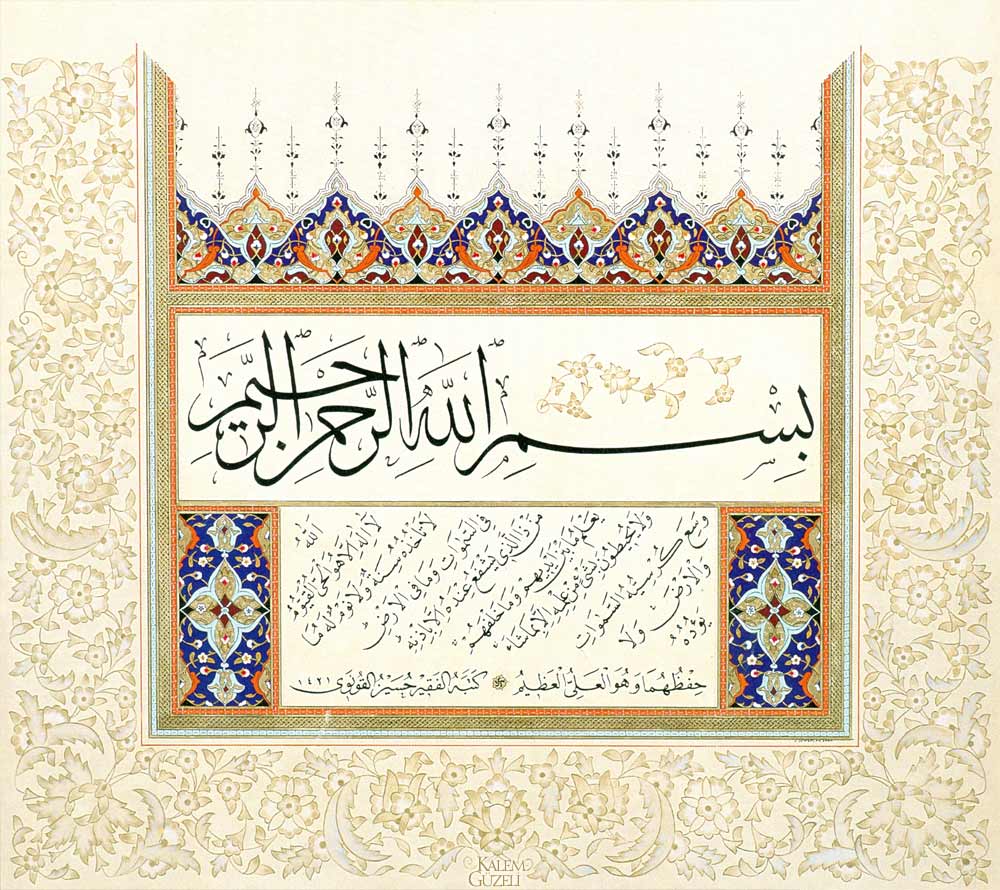 بِسْمِ اللّٰهِ الرَّحْمٰنِ الرَّحِيمِ
اَللّٰهُ
لَا اِلٰهَ اِلَّا هُوَ الْحَيُّ الْقَيُّومُ
لَا تَأْخُذُهُ سِنَةٌ وَلَا نَوْمٌ لَهُ مَا
فِي السَّمٰوَاتِ وَمَا فِي الْاَرْضِ
مَنْ ذَا الَّذِي يَشْفَعُ عِنْدَهُ اِلَّا بِاِذْنِهِ
يَعْلَمُ مَا بَيْنَ اَيْدِيهِمْ وَمَا خَلْفَهُمْ
وَلَا يُحِيطُونَ بِشَيْءٍ مِنْ عِلْمِهِ اِلَّا بِمَا شَاءَ
وَسِعَ كُرْسِيُّهُ السَّمٰوَاتِ
وَالْاَرْضَ وَلَا
يَؤُدُهُ
حِفْظُهُمَا وَهُوَ الْعَلِيُّ الْعَظِيمُ كتبه الفقير حسين القونوي ١٤٢١
KALEM
GÜZELİ